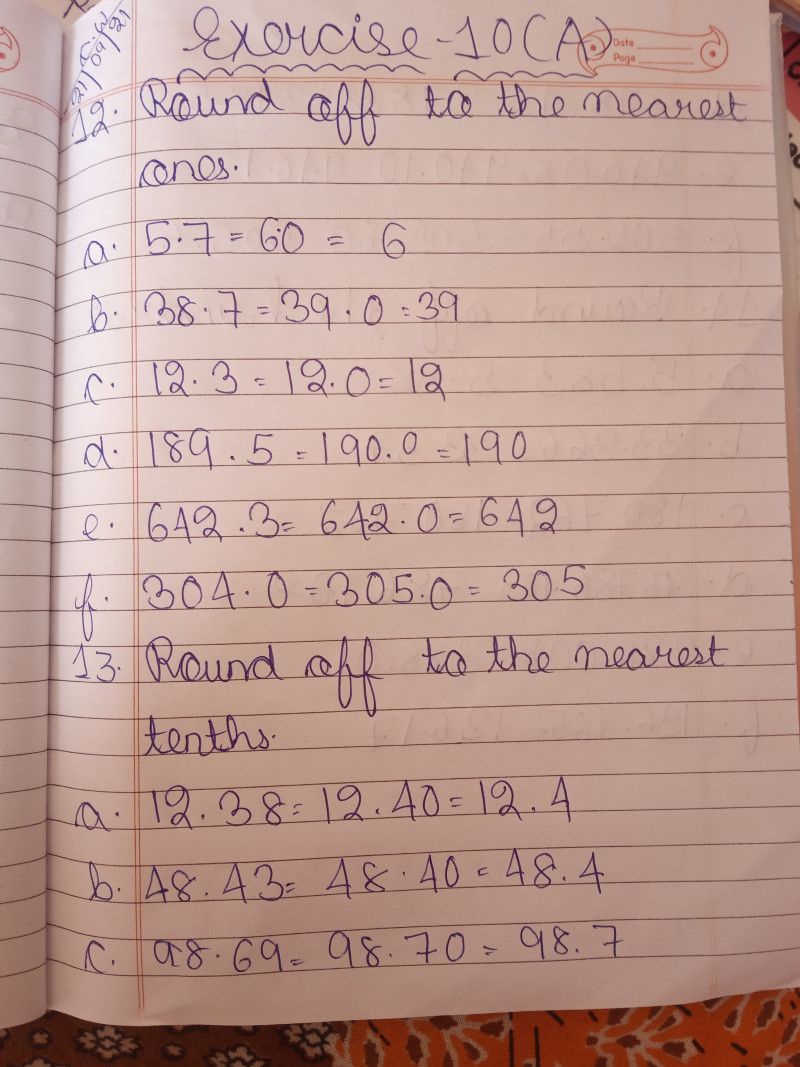 C.W
21/09/21
Exercise - 10(A)
Date
Page
12. Round off to the nearest
ones.
a. 5.7 = 6.0 = 6
b. 38.7 = 39.0 = 39
c. 12.3 = 12.0 = 12
d. 189.5 = 190.0 = 190
e. 642.3 = 642.0 = 642
f. 304.0 = 305.0 = 305
13. Round off to the nearest
tenths.
a. 12.38 = 12.40 = 12.4
b. 48.43 = 48.40 = 48.4
c. 98.69 = 98.70 = 98.7